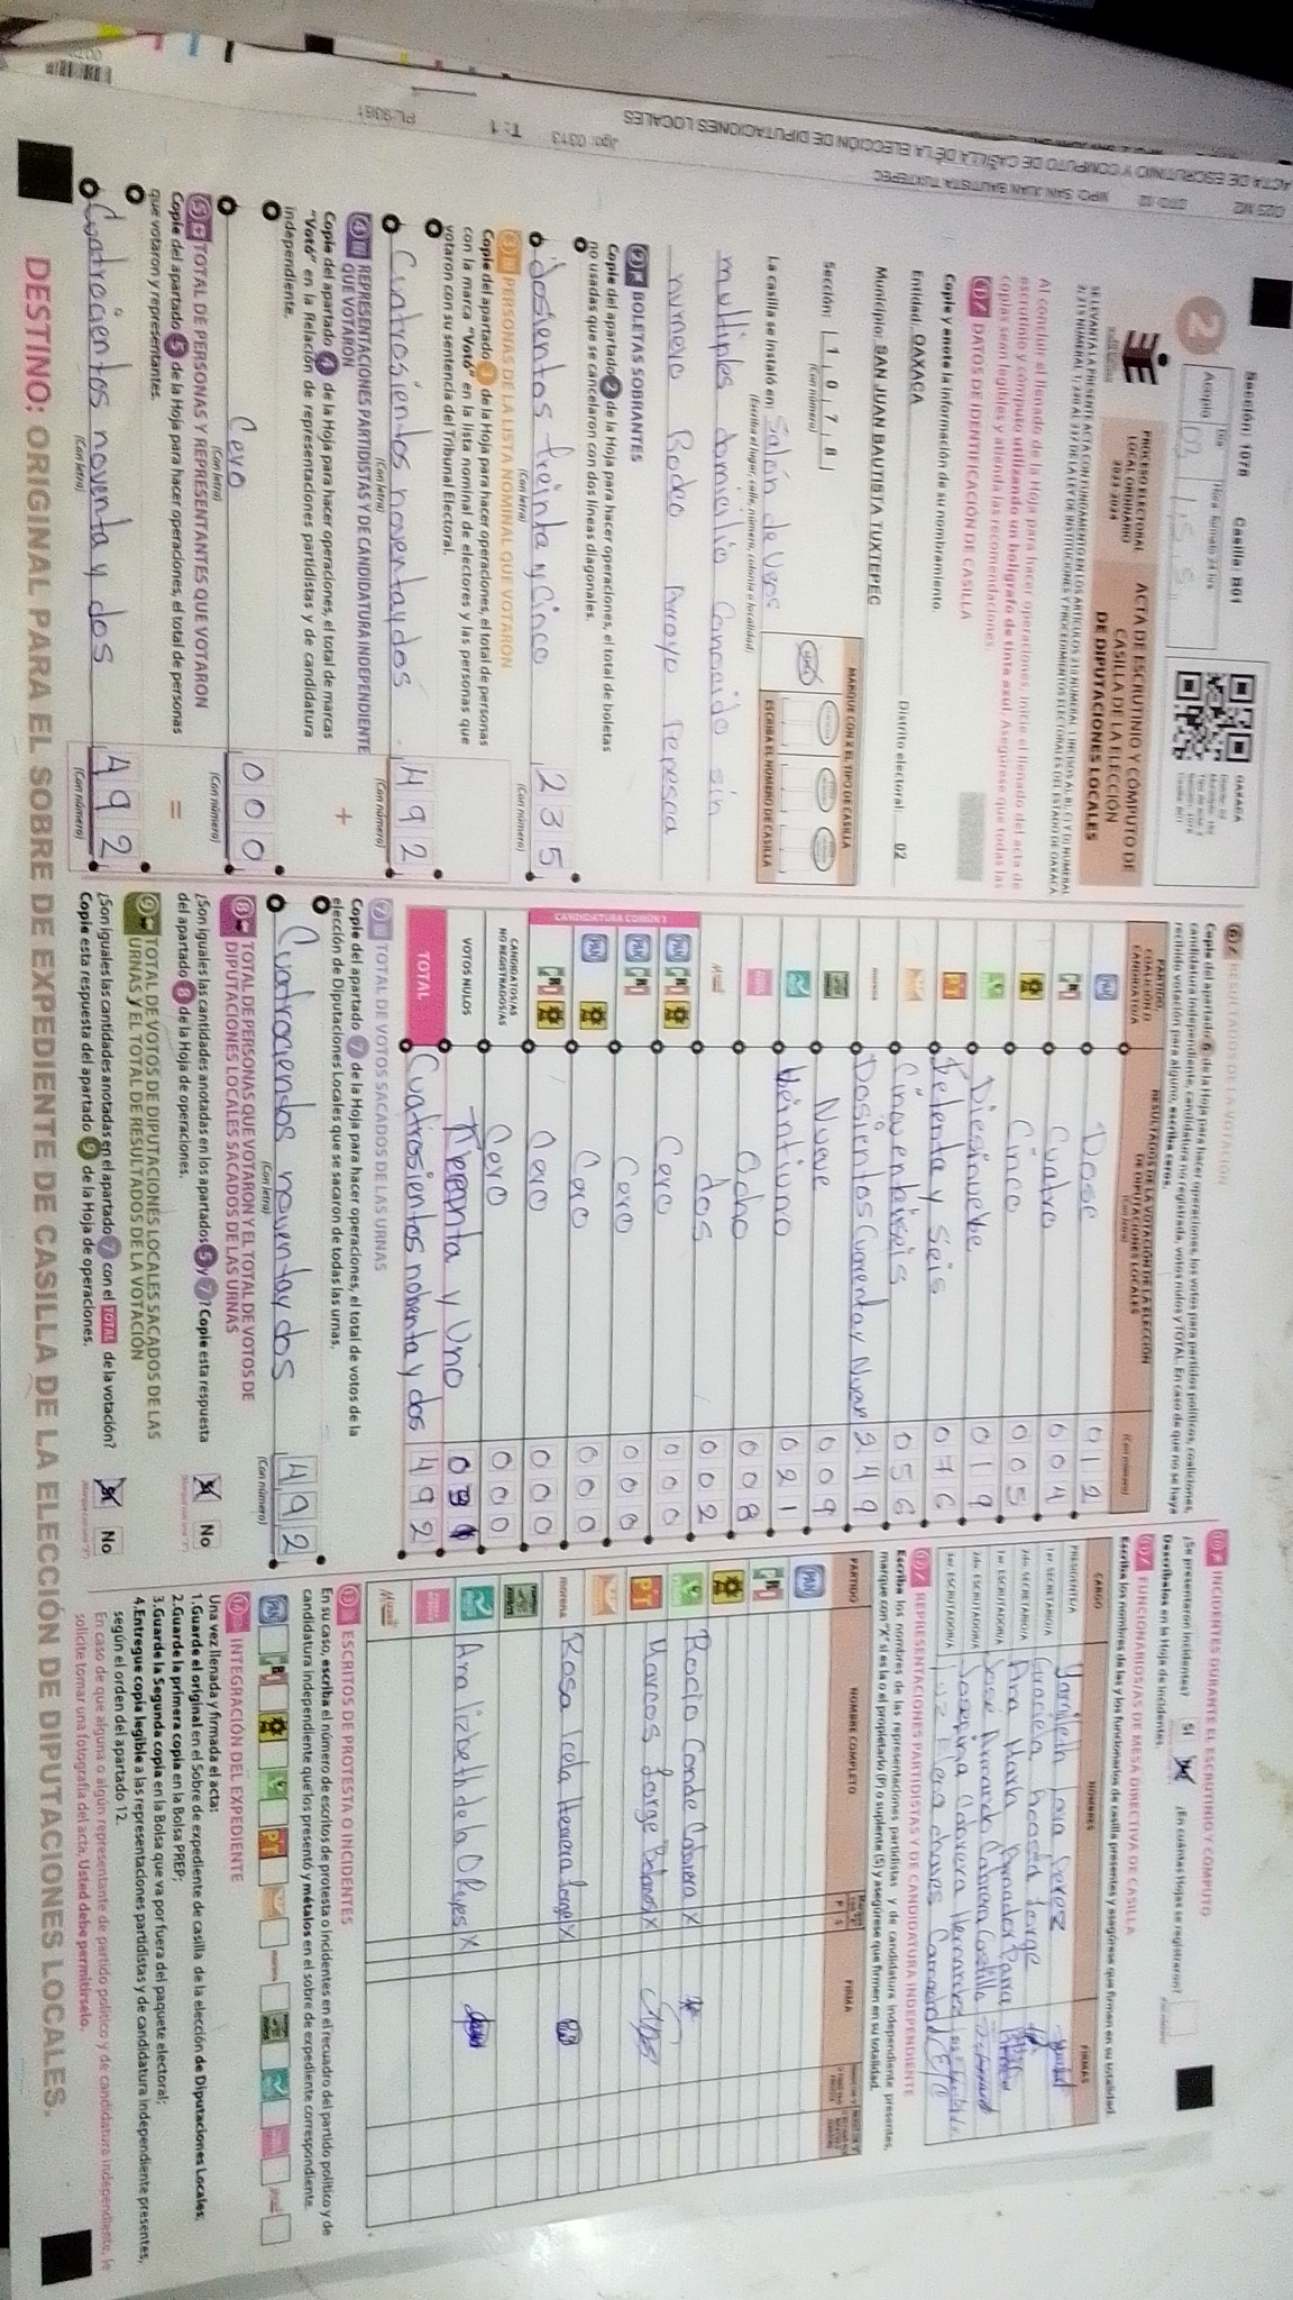 Sección: 1078 Casilla: B01
2
Acopio
PROCESO ELECTORAL
LOCAL ORDINARIO
2023-2024
ACTA DE ESCRUTINIO Y CÓMPUTO DE
CASILLA DE LA ELECCIÓN
DE DIPUTACIONES LOCALES
OAXACA
Al concluir el llenado de la Hoja para hacer operaciones, inicie el llenado del acta de
escrutinio y cómputo utilizando un bolígrafo de tinta azul. Asegúrese que todas las
copias sean legibles y atienda las recomendaciones.
1 DATOS DE IDENTIFICACIÓN DE CASILLA
Copie y anote la información de su nombramiento.
Entidad: OAXACA Distrito electoral: 02
Municipio: SAN JUAN BAUTISTA TUXTEPEC
Sección: 1 0 7 8
(Con número)
MARQUE CON X EL TIPO DE CASILLA
ESCRIBA EL NÚMERO DE CASILLA
La casilla se instaló en: Salón de Usos
(Escriba el lugar, calle, número, colonia o localidad)
multiples domicilio Conocido sin
numero Rodeo Arroyo Pepesca
2 BOLETAS SOBRANTES
Copie del apartado 2 de la Hoja para hacer operaciones, el total de boletas
no usadas que se cancelaron con dos líneas diagonales.
dosientos treinta y Cinco 2 3 5
(Con letra) (Con número)
3 PERSONAS DE LA LISTA NOMINAL QUE VOTARON
Copie del apartado 3 de la Hoja para hacer operaciones, el total de personas
con la marca "Votó" en la lista nominal de electores y las personas que
votaron con su sentencia del Tribunal Electoral.
Cuatrosientos noventa y dos 4 9 2
(Con letra) (Con número)
4 REPRESENTACIONES PARTIDISTAS Y DE CANDIDATURA INDEPENDIENTE
QUE VOTARON
Copie del apartado 4 de la Hoja para hacer operaciones, el total de marcas
"Votó" en la Relación de representaciones partidistas y de candidatura
independiente.
+
Cero 0 0 0
(Con letra) (Con número)
5 TOTAL DE PERSONAS Y REPRESENTANTES QUE VOTARON
Copie del apartado 5 de la Hoja para hacer operaciones, el total de personas
que votaron y representantes.
=
Cuatrocientos noventa y dos 4 9 2
(Con letra) (Con número)
6 RESULTADOS DE LA VOTACIÓN
Copie del apartado 6 de la Hoja para hacer operaciones, los votos para partidos políticos, coaliciones,
candidatura independiente, candidatura no registrada, votos nulos y TOTAL. En caso de que no se haya
recibido votación para alguno, escriba ceros.
PARTIDO,
COALICIÓN O
CANDIDATO/A
RESULTADOS DE LA VOTACIÓN DE LA ELECCIÓN
DE DIPUTACIONES LOCALES
(Con letra) (Con número)
PAN Dose 0 1 2
PRI Cuatro 0 0 4
Cinco 0 0 5
Diesinuebe 0 1 9
PT Setenta y Seis 0 7 6
Cinquentaiseis 0 5 6
morena Dosientos Cuarenta y Nueve 2 4 9
Nueve 0 0 9
Veintiuno 0 2 1
Ocho 0 0 8
dos 0 0 2
CANDIDATURA COMÚN 1
PAN PRI Cero 0 0 0
PAN PRI Cero 0 0 0
PAN Cero 0 0 0
PRI Cero 0 0 0
CANDIDATOS/AS
NO REGISTRADOS/AS Cero 0 0 0
VOTOS NULOS Treenta y Uno 0 3 1
TOTAL Cuatrosientos nobenta y dos 4 9 2
7 TOTAL DE VOTOS SACADOS DE LAS URNAS
Copie del apartado 7 de la Hoja para hacer operaciones, el total de votos de la
elección de Diputaciones Locales que se sacaron de todas las urnas.
Cuatrocientos noventa y dos 4 9 2
(Con letra) (Con número)
8 TOTAL DE PERSONAS QUE VOTARON Y EL TOTAL DE VOTOS DE
DIPUTACIONES LOCALES SACADOS DE LAS URNAS
¿Son iguales las cantidades anotadas en los apartados 5 y 7? Copie esta respuesta
del apartado 8 de la Hoja de operaciones.
No
9 TOTAL DE VOTOS DE DIPUTACIONES LOCALES SACADOS DE LAS
URNAS Y EL TOTAL DE RESULTADOS DE LA VOTACIÓN
¿Son iguales las cantidades anotadas en el apartado 7 con el TOTAL de la votación?
Copie esta respuesta del apartado 9 de la Hoja de operaciones.
No
10 INCIDENTES DURANTE EL ESCRUTINIO Y CÓMPUTO
¿Se presentaron incidentes? Sí ¿En cuántas Hojas se registraron?
Descríbalos en la Hoja de Incidentes.
11 FUNCIONARIOS/AS DE MESA DIRECTIVA DE CASILLA
Escriba los nombres de las y los funcionarios de casilla presentes y asegúrese que firmen en su totalidad.
CARGO NOMBRES FIRMAS
PRESIDENTE/A Yarnileth Jara Perez
1er. SECRETARIO/A Graciela Jorge
2do. SECRETARIO/A Ana Maria Amador Parra
1er. ESCRUTADOR/A José Armando Cabrera Castillo
2do. ESCRUTADOR/A Josepina Cabrera Hernandez
3er. ESCRUTADOR/A Luz Elena chaves
12 REPRESENTACIONES PARTIDISTAS Y DE CANDIDATURA INDEPENDIENTE
Escriba los nombres de las representaciones partidistas y de candidatura independiente presentes,
marque con "X" si es la o el propietario (P) o suplente (S) y asegúrese que firmen en su totalidad.
PARTIDO NOMBRE COMPLETO P S FIRMA
PAN
PRI
Rocio Conde Cabrera X
PT Marcos Jorge Bolanos X
morena Rosa Icela Herrera Jorge X
Ana lizbeth de la O Reyes X
13 ESCRITOS DE PROTESTA O INCIDENTES
En su caso, escriba el número de escritos de protesta o incidentes en el recuadro del partido político y de
candidatura independiente que los presentó y métalos en el sobre de expediente correspondiente.
PAN PRI PT morena
14 INTEGRACIÓN DEL EXPEDIENTE
Una vez llenada y firmada el acta:
1.Guarde el original en el Sobre de expediente de casilla de la elección de Diputaciones Locales;
2.Guarde la primera copia en la Bolsa PREP;
3.Guarde la Segunda copia en la Bolsa que va por fuera del paquete electoral;
4.Entregue copia legible a las representaciones partidistas y de candidatura independiente presentes,
según el orden del apartado 12.
En caso de que alguna o algún representante de partido político y de candidatura independiente, le
solicite tomar una fotografía del acta, Usted debe permitírselo.
DESTINO: ORIGINAL PARA EL SOBRE DE EXPEDIENTE DE CASILLA DE LA ELECCIÓN DE DIPUTACIONES LOCALES.
ACTA DE ESCRUTINIO Y COMPUTO DE CASILLA DE LA ELECCIÓN DE DIPUTACIONES LOCALES
MPO: SAN JUAN BAUTISTA TUXTEPEC
Jgo: 0313 T: 1